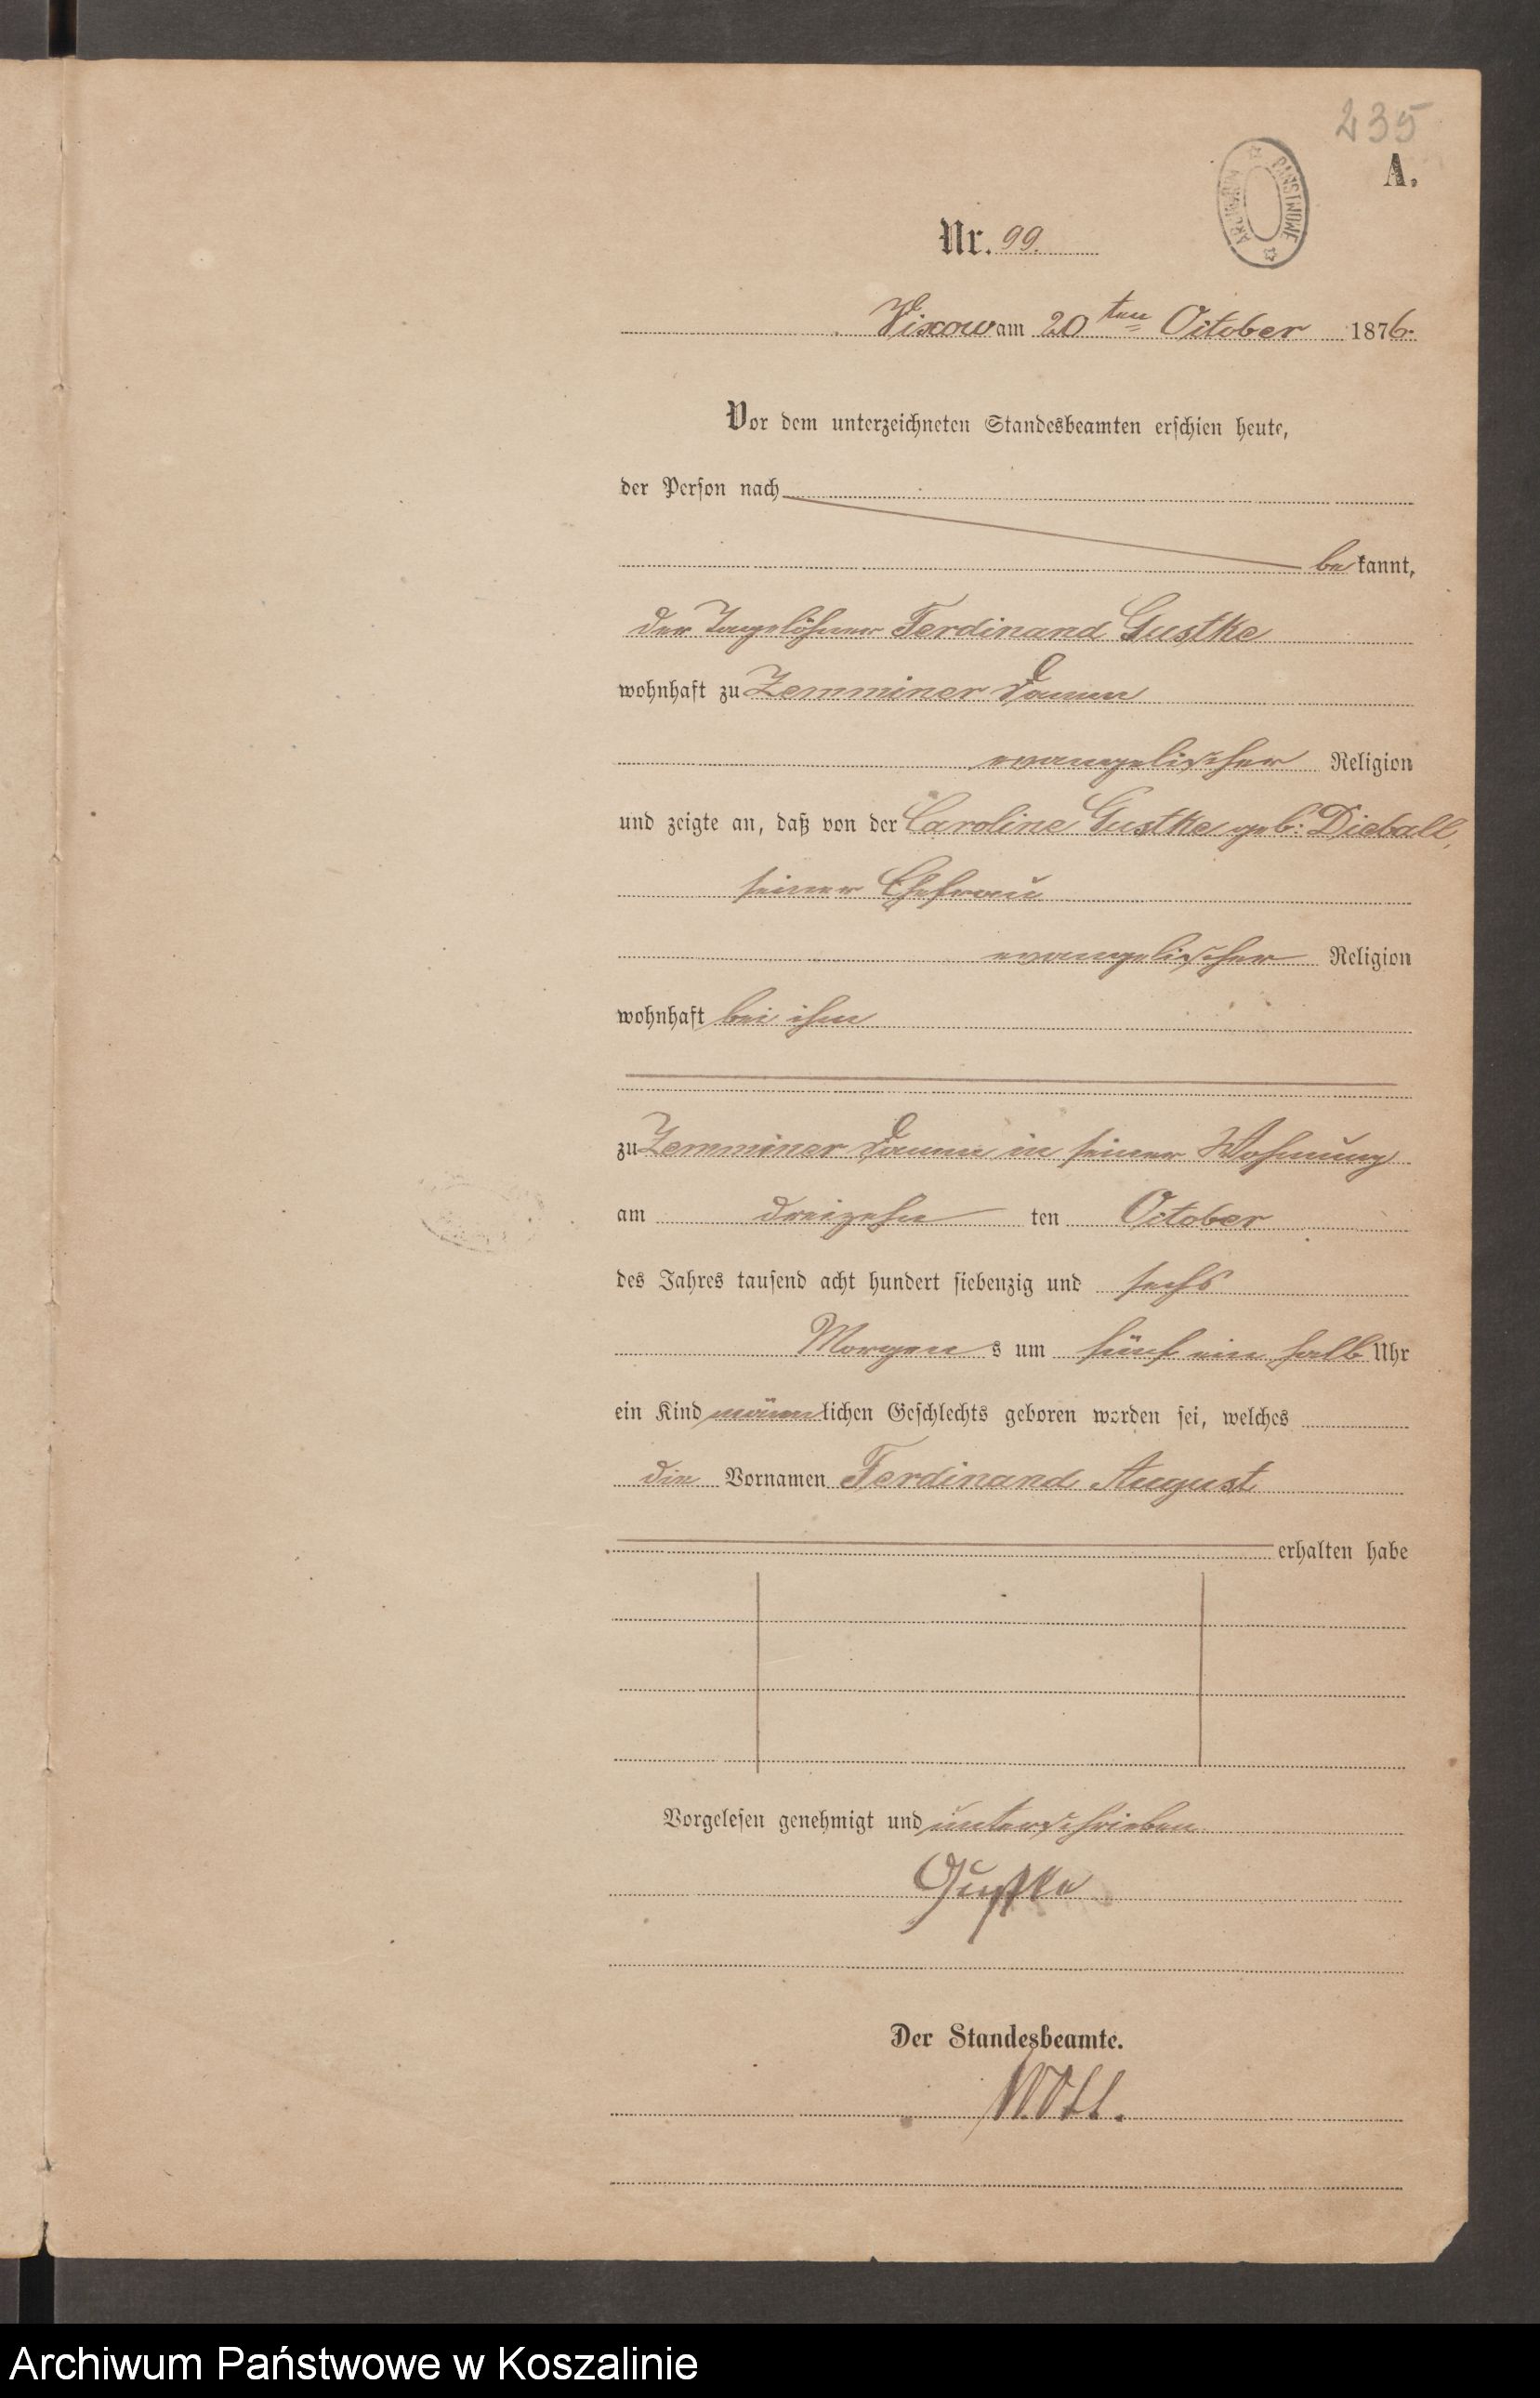 235
A.
ARCHIWUM PAŃSTWOWE
Nr. 99.
Vixow am 20ten October 1876.
Vor dem unterzeichneten Standesbeamten erschien heute,
der Person nach
bekannt,
der Tagelöhner Ferdinand Gustke
wohnhaft zu Zemminer Damm
evangelischer Religion
und zeigte an, daß von der Caroline Gustke geb: Dieball,
seiner Ehefrau
evangelischer Religion
wohnhaft bei ihm
zu Zemminer Damm in seiner Wohnung
am dreizehn ten October
des Jahres tausend acht hundert siebenzig und sechs
Morgens um fünf ein halb Uhr
ein Kind männlichen Geschlechts geboren worden sei, welches
die Vornamen Ferdinand August
erhalten habe
Vorgelesen genehmigt und unterschrieben
Gustke
Der Standesbeamte.
Archiwum Państwowe w Koszalinie